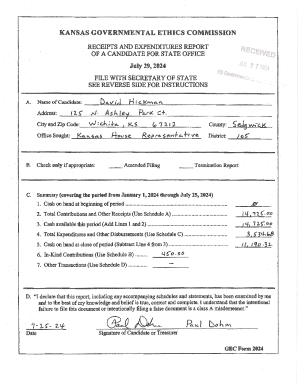 KANSAS GOVERNMENTAL ETHICS COMMISSION
RECEIPTS AND EXPENDITURES REPORT
OF A CANDIDATE FOR STATE OFFICE
July 29, 2024
FILE WITH SECRETARY OF STATE
SEE REVERSE SIDE FOR INSTRUCTIONS
RECEIVED
A. Name of Candidate: David Hickman
Address: 125 N Ashley Park Ct.
City and Zip Code: Wichita, KS 67212 County: Sedgwick
Office Sought: Kansas House Representative District: 105
B. Check only if appropriate: Amended Filing Termination Report
C. Summary (covering the period from January 1, 2024 through July 25, 2024)
1. Cash on hand at beginning of period Ø
2. Total Contributions and Other Receipts (Use Schedule A) 14,725.00
3. Cash available this period (Add Lines 1 and 2) 14,725.00
4. Total Expenditures and Other Disbursements (Use Schedule C) 3,534.68
5. Cash on hand at close of period (Subtract Line 4 from 3) 11,190.32
6. In-Kind Contributions (Use Schedule B) 450.00
7. Other Transactions (Use Schedule D) –
D. "I declare that this report, including any accompanying schedules and statements, has been examined by me
and to the best of my knowledge and belief is true, correct and complete. I understand that the intentional
failure to file this document or intentionally filing a false document is a class A misdemeanor."
7-25-24 Paul Dohm Paul Dohm
Date Signature of Candidate or Treasurer
GEC Form 2024